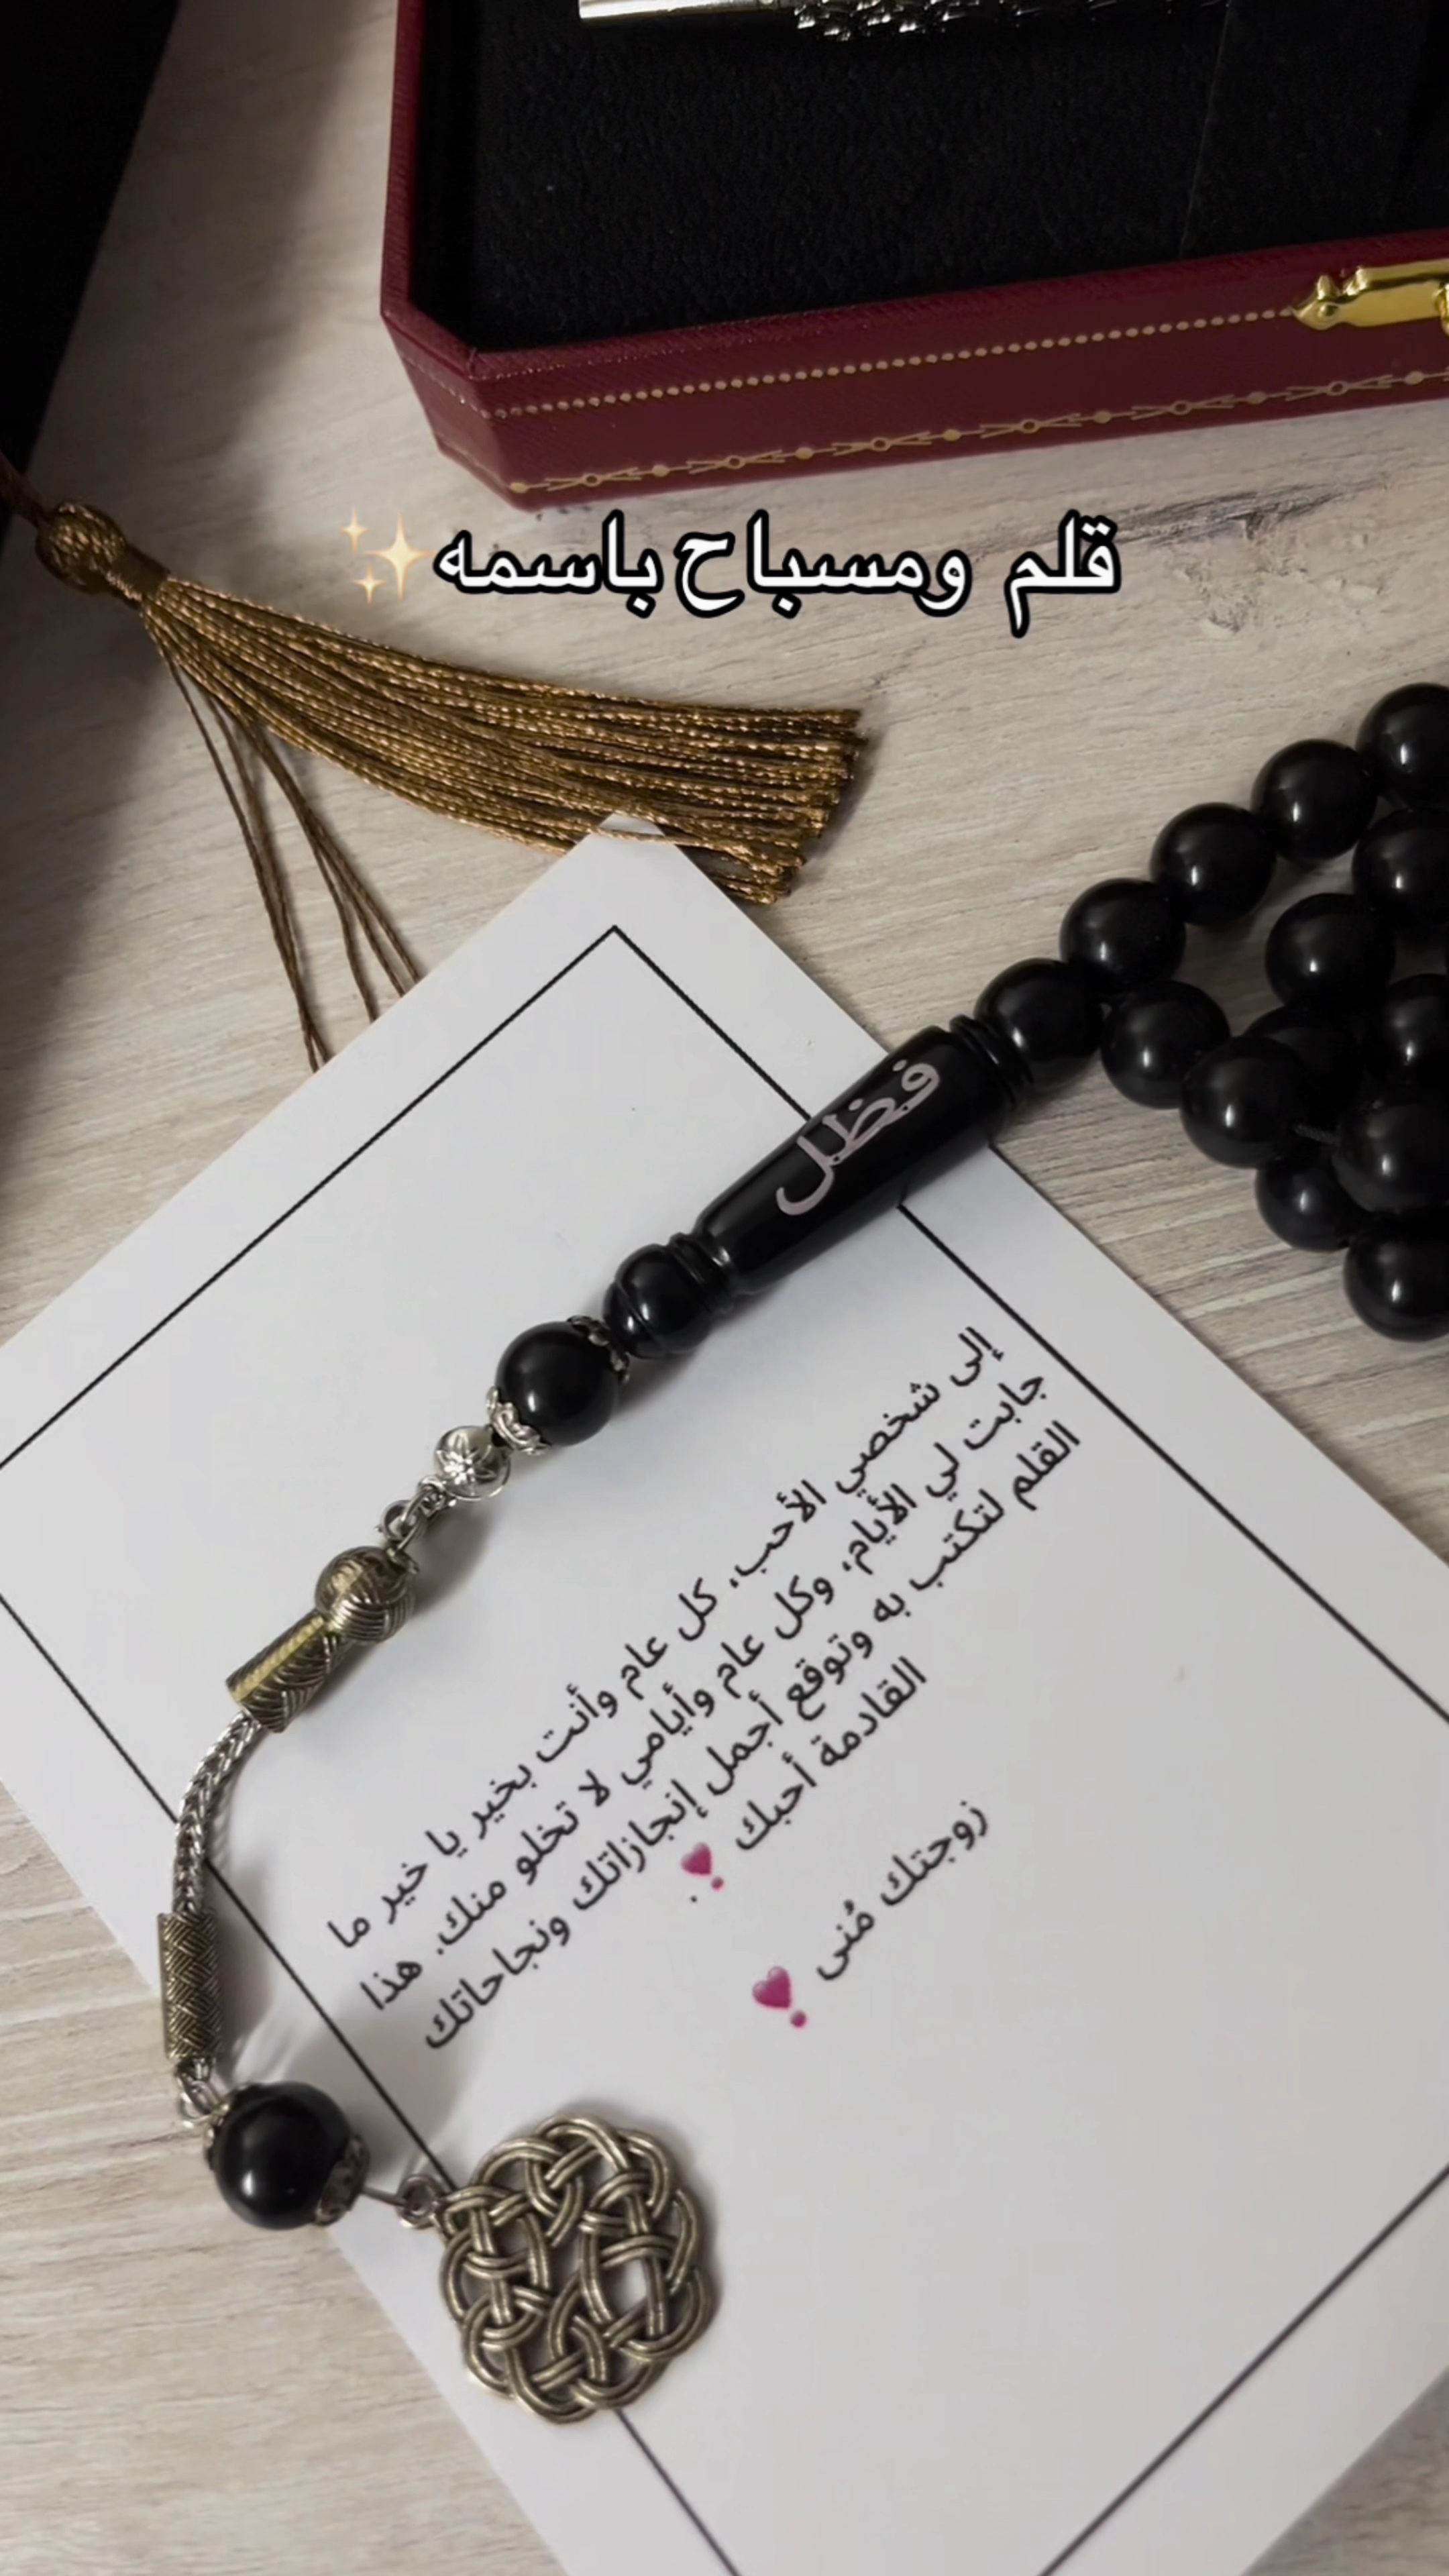 قلم ومسباح باسمه✨
فظل
إلى شخصي الأحب، كل عام وأنت بخير يا خير ما
جابت لي الأيام، وكل عام وأيامي لا تخلو منك. هذا
القلم لتكتب به وتوقع أجمل إنجازاتك ونجاحاتك
القادمة أحبك ❣️.
زوجتك مُنى ❣️